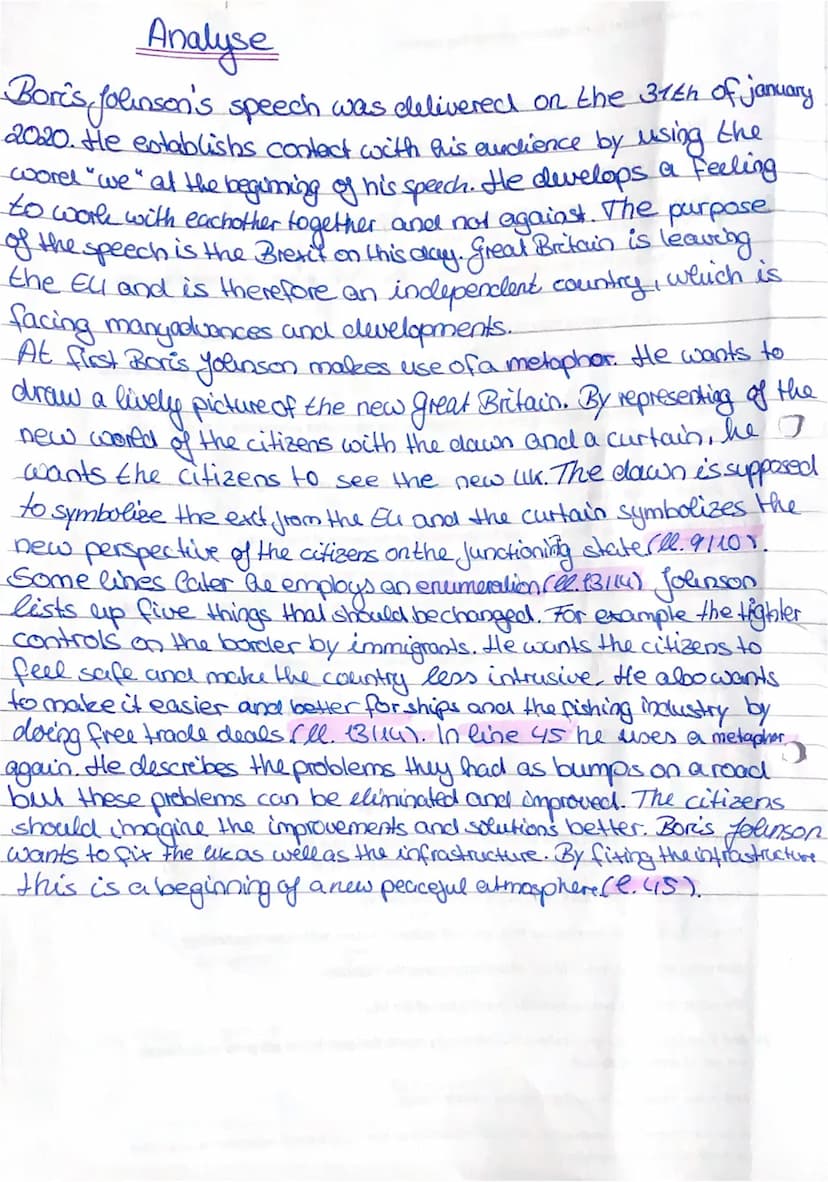 Analyse
Boris Johnson's speech was delivered on the 31th of january
2020. He establishs contact with his audience by using the
word "we" at the beginning of his speech. He develops a feeling
to work with eachother together and not against. The purpose
of the speech is the Brexit on this day. Great Britain is leaving
the EU and is therefore an independent country, which is
facing many advances and developments.
At first Boris Johnson makes use of a metaphor. He wants to
draw a lively picture of the new great Britain. By representing of the
new world of the citizens with the dawn and a curtain, he
wants the citizens to see the new UK. The dawn is supposed
to symbolize the exit from the EU and the curtain symbolizes the
new perspective of the citizens on the functioning state (ll. 9/10).
Some lines later he employs an enumeration (ll. 13/14) Johnson
lists up five things that should be changed. For example the tighter
controls on the border by immigrants. He wants the citizens to
feel safe and make the country less intrusive. He also wants
to make it easier and better for ships and the fishing industry by
doing free trade deals (ll. 13/14). In line 45 he uses a metapher
again. He describes the problems they had as bumps on a road
but these problems can be eliminated and improved. The citizens
should imagine the improvements and solutions better. Boris Johnson
wants to fix the uk as well as the infrastructure. By fixing the infrastructure
this is a beginning of a new peaceful atmosphere (l. 45).